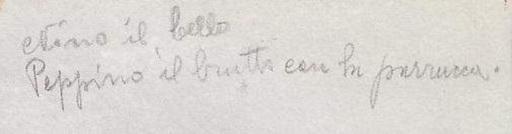 Nino il bello
Peppino il brutto con la parrucca.